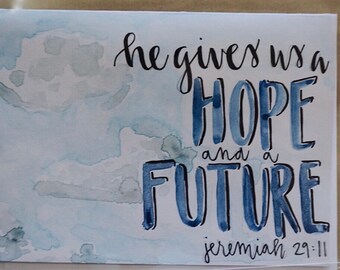 he gives us a
HOPE
and a
FUTURE
jeremiah 29:11